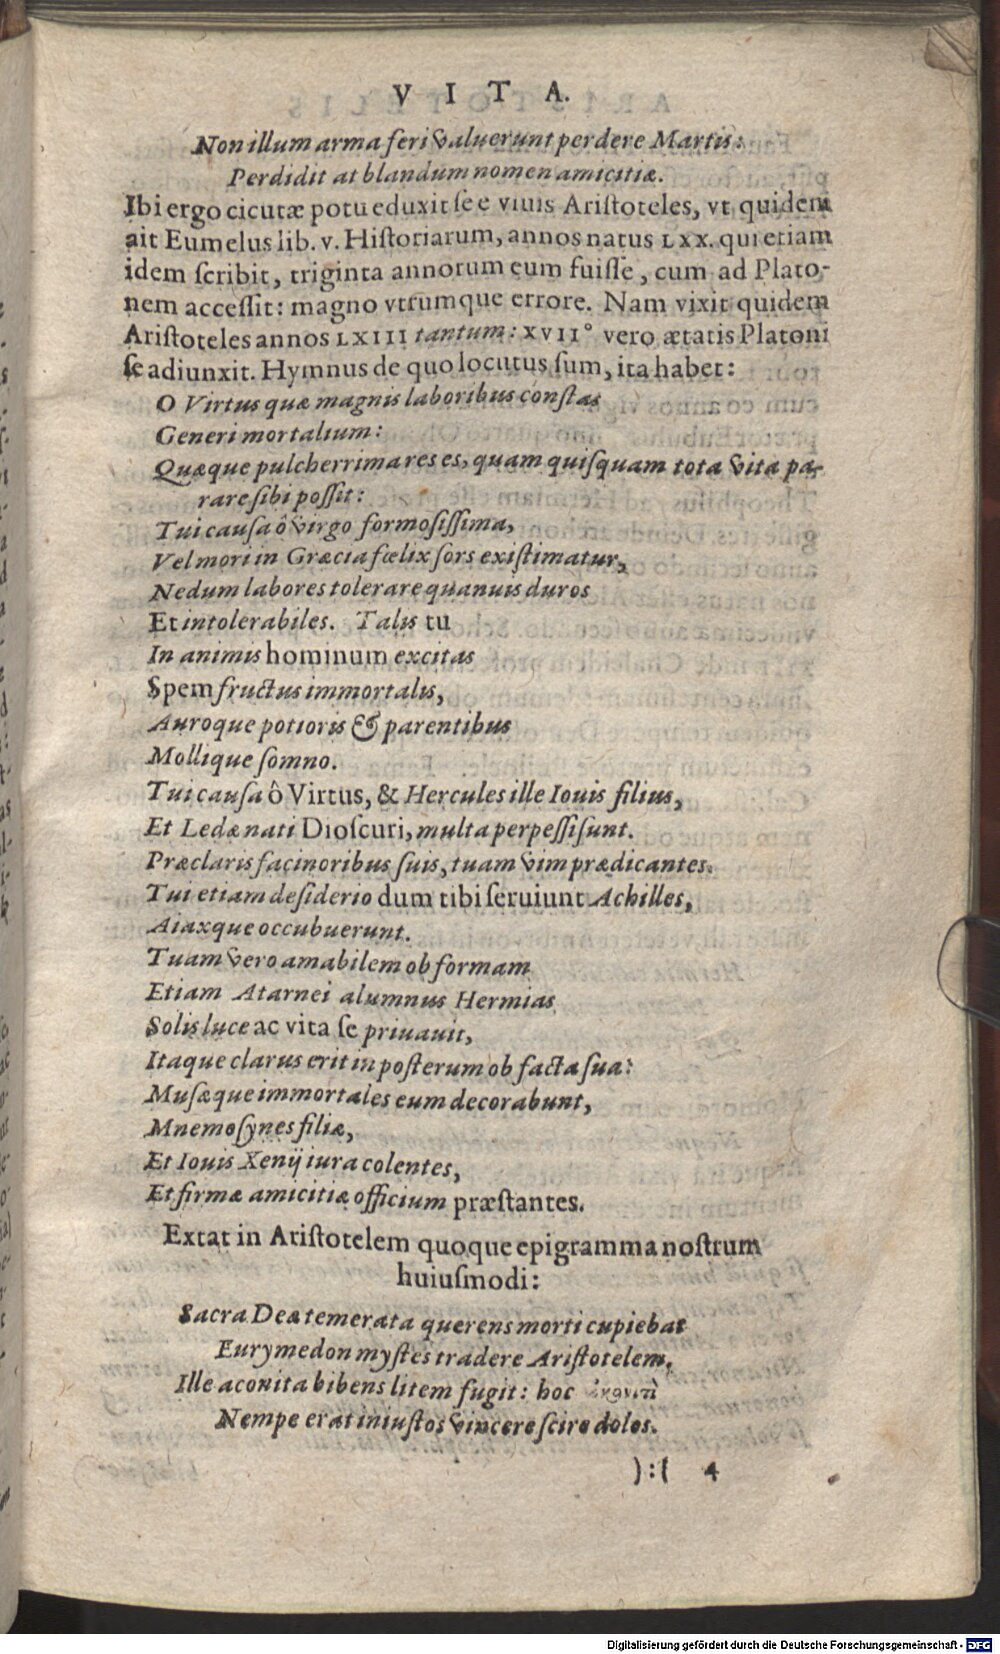 V I T A.
Non illum arma feri valuerunt perdere Martis:
Perdidit at blandum nomen amicitiæ.
Ibi ergo cicutæ potu eduxit se e viuis Aristoteles, vt quidem
ait Eumelus lib. v. Historiarum, annos natus LXX. qui etiam
idem scribit, triginta annorum eum fuisse, cum ad Plato-
nem accessit: magno vtrumque errore. Nam vixit quidem
Aristoteles annos LXIII tantum: XVII° vero ætatis Platoni
se adiunxit. Hymnus de quo locutus sum, ita habet:
O Virtus quæ magnis laboribus constas
Generi mortalium:
Quæque pulcherrima res es, quam quisquam tota vita pa-
rare sibi possit:
Tui causa ô virgo formosissima,
Vel mori in Græcia fœlix sors existimatur,
Nedum labores tolerare quanuis duros
Et intolerabiles. Talis tu
In animis hominum excitas
Spem fructus immortalis,
Auroque potioris & parentibus
Mollique somno.
Tui causa ô Virtus, & Hercules ille Iouis filius,
Et Ledæ nati Dioscuri, multa perpessi sunt.
Præclaris facinoribus suis, tuam vim prædicantes.
Tui etiam desiderio dum tibi seruiunt Achilles,
Aiaxque occubuerunt.
Tuam vero amabilem ob formam
Etiam Atarnei alumnus Hermias
Solis luce ac vita se priuauit,
Itaque clarus erit in posterum ob facta sua:
Musæque immortales eum decorabunt,
Mnemosynes filiæ,
Et Iouis Xenij iura colentes,
Et firmæ amicitiæ officium præstantes.
Extat in Aristotelem quoque epigramma nostrum
huiusmodi:
Sacra Dea temerata querens morti cupiebat
Eurymedon mystes tradere Aristotelem,
Ille aconita bibens litem fugit: hoc
Nempe erat iniustos vincere scire dolos.
):( 4
Digitalisierung gefördert durch die Deutsche Forschungsgemeinschaft - DFG